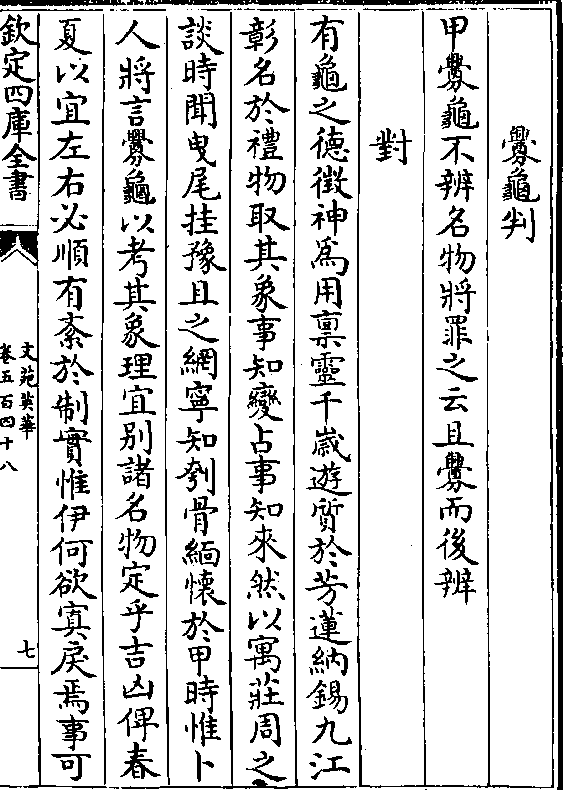 釁龜判
甲釁龜不辨名物將罪之云且釁而後辨
對
有龜之德徵神爲用禀靈千歲遊質於芳蓮納錫九江
彰名於禮物取其象事知變占事知來然以寓莊周之
談時聞曳尾挂豫且之網寧知刳骨緬懷於甲時惟卜
人將言釁龜以考其象理宜别諸名物定乎吉凶俾春
夏以宜左右必順有紊於制實惟伊何欲寘戾焉事可
欽定四庫全書
文苑英華
卷五百四十八
七